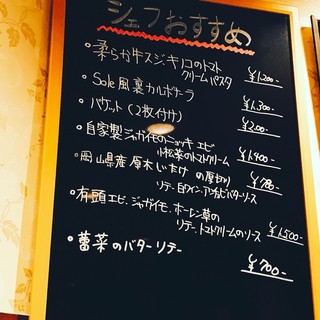 シェフおすすめ
・柔らか牛スジ・キノコのトマト
クリームパスタ ¥1,200-
・Sole風 裏カルボナーラ ¥1,300-
・バゲット(2枚付け) ¥200-
・自家製ジャガイモのニョッキ エビ
小松菜のトマトクリーム ¥1,400-
・岡山県産 原木しいたけの厚切り
ソテー 白ワイン、アンチョビバターソース ¥780-
・有頭エビ、ジャガイモ、ホーレン草の
ソテー、トマトクリームのソース ¥1,500-
・蕾菜のバターソテー ¥700-